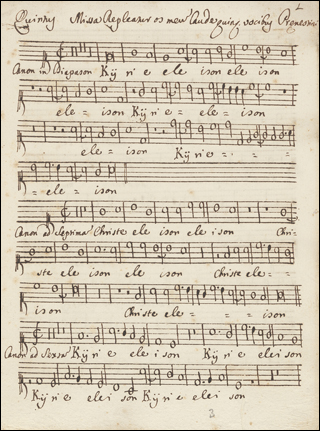 Quintus Missa Repleatur os meum laude quinq. vocibus Prenestini
Canon in Diapason Kyrie eleison eleison
eleison Kyrie elei=
eleison Kyrie=
= eleison
Canon ad Septima Christe eleison eleison Chri=
ste eleison eleison Christe ele=
ison Christe eleison
Canon ad Sexta Kyrie eleison Kyrie eleison
Kyrie eleison Kyrie eleison